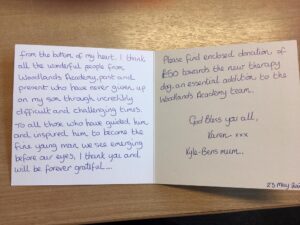 from the bottom of my heart. I thank
all the wonderful people from
Woodlands Academy, past and
present who have never given up
on my son through incredibly
difficult and challenging times.
To all those who have guided him
and inspired him to become the
fine young man we see emerging
before our eyes, I thank you and
will be forever grateful....
Please find enclosed donation of
£50 towards the new therapy
dog, an essential addition to the
Woodlands Academy team.
God Bless you all,
Karen xxx
Kyle-Ben's mum...
23 May